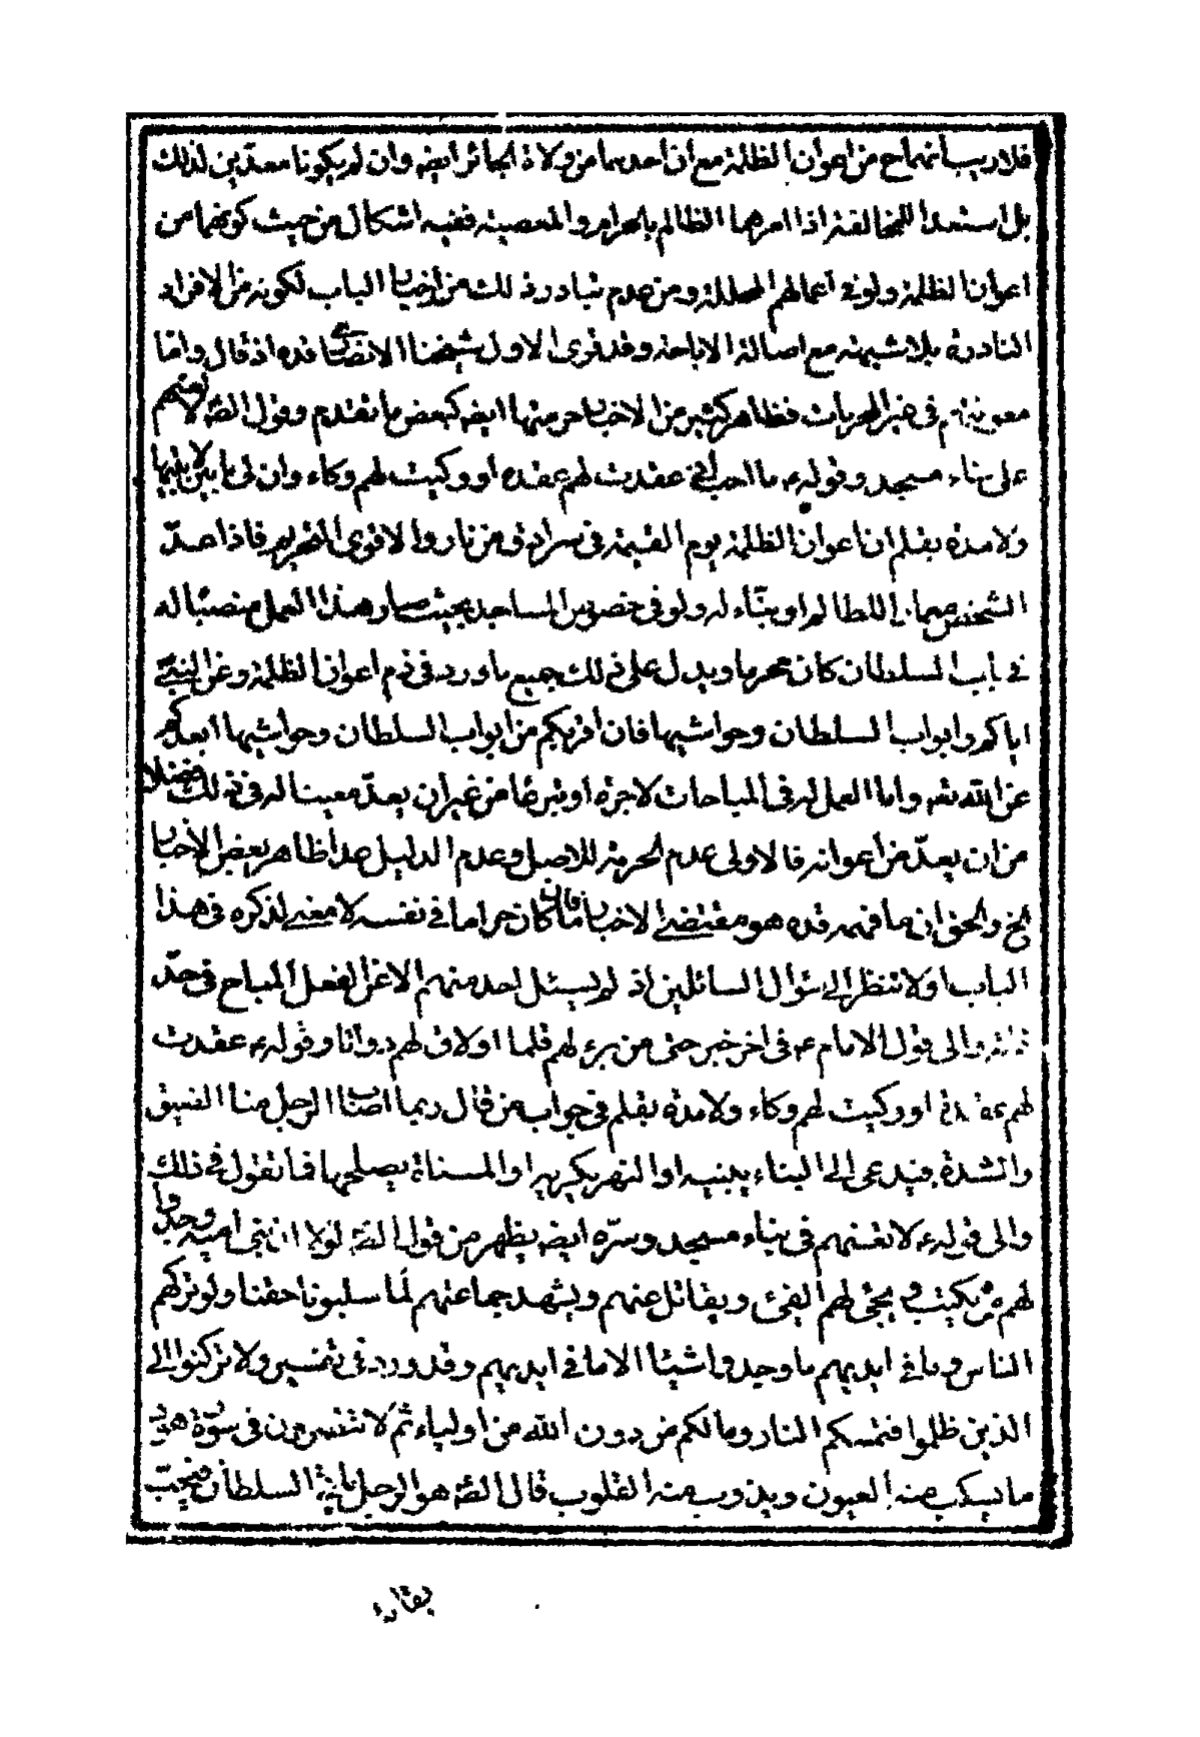 فلا ريب انهما ح من اعوان الظلمة مع ان احدهما من ولاة الجائر ايضه وان لم يكونا معدّين لذلك
بل استعدا للمخالفة اذا امرهما الظالم بالحرام والمعصية ففيه اشكال من حيث كونهما من
اعوان الظلمة ولو في اعمالهم المحللة ومن عدم تبادر ذلك من اخبار الباب لكونه من الافراد
النادرة بلا شبهة مع اصالة الاباحة وقد قوى الاول شيخنا الانصاري قده اذ قال واما
معونتهم في غير المحرمات فظاهر كثير من الاخبار حرمتها ايضه كبعض ما تقدم وقول الصّه لا تعنهم
على بناء مسجد وقوله ع ما احب اني عقدت لهم عقدة او وكيت لهم وكاء وان لي ما بين لابتيها
ولا مدة بقلم ان اعوان الظلمة يوم القيمة في سرادق من نار والاقوى التحريم فاذا عدّ
الشخص معمارا للظالم او بنّاء له ولو في خصوص المساجد بحيث صار هذا العمل منصبًا له
في باب السلطان كان محرما ويدل على ذلك جميع ما ورد في ذم اعوان الظلمة وعن النبيّ
اياكم وابواب السلطان وحواشيها فان اقربكم من ابواب السلطان وحواشيها ابعدكم
عن الله تعه واما العمل له في المباحات لاجرة او تبرعًا من غير ان يعدّ معينا له في ذلك فضلا
من ان يعدّ من اعوانه فالاولى عدم الحرمة للاصل وعدم الدليل عدا ظاهر بعض الاخبار
الخ والحق ان ما فهمه قده هو مقتضى الاخبار فان ما كان حراما في نفسه لا معنى لذكره في هذا
الباب اولا تنظر الى سؤال السائلين اذ لم يسئل احد منهم الا عن الفعل المباح في حدّ
ذاته والى قول الامام ع في اخر خبر حتى من برء لهم قلما او لاق لهم دواتا وقوله ع عقدت
لهم عقدة او وكيت لهم وكاء ولا مدة بقلم في جواب من قال ربما اصاب الرجل منا الضيق
والشدة فيدعى الى البناء يبنيه او النهر يكريه او المسناة يصلحها فما تقول في ذلك
والى قوله ع لا تعنهم في بناء مسجد وسرّه ايضه يظهر من قول الصّه لولا ان بني امية وجدوا
لهم من يكتب ويجبي لهم الفئ ويقاتل عنهم ويشهد جماعتهم لَما سلبونا حقنا ولو تركهم
الناس وما في ايديهم ما وجدوا شيئا الا ما في ايديهم وقد ورد في تفسير ولا تركنوا الى
الذين ظلموا فتمسكم النار وما لكم من دون الله من اولياء ثم لا تنصرون في سورة هود
ما يسكب منه العيون ويذوب منه القلوب قال الصّه هو الرجل ياتي السلطان فيحبّ
بقاءه